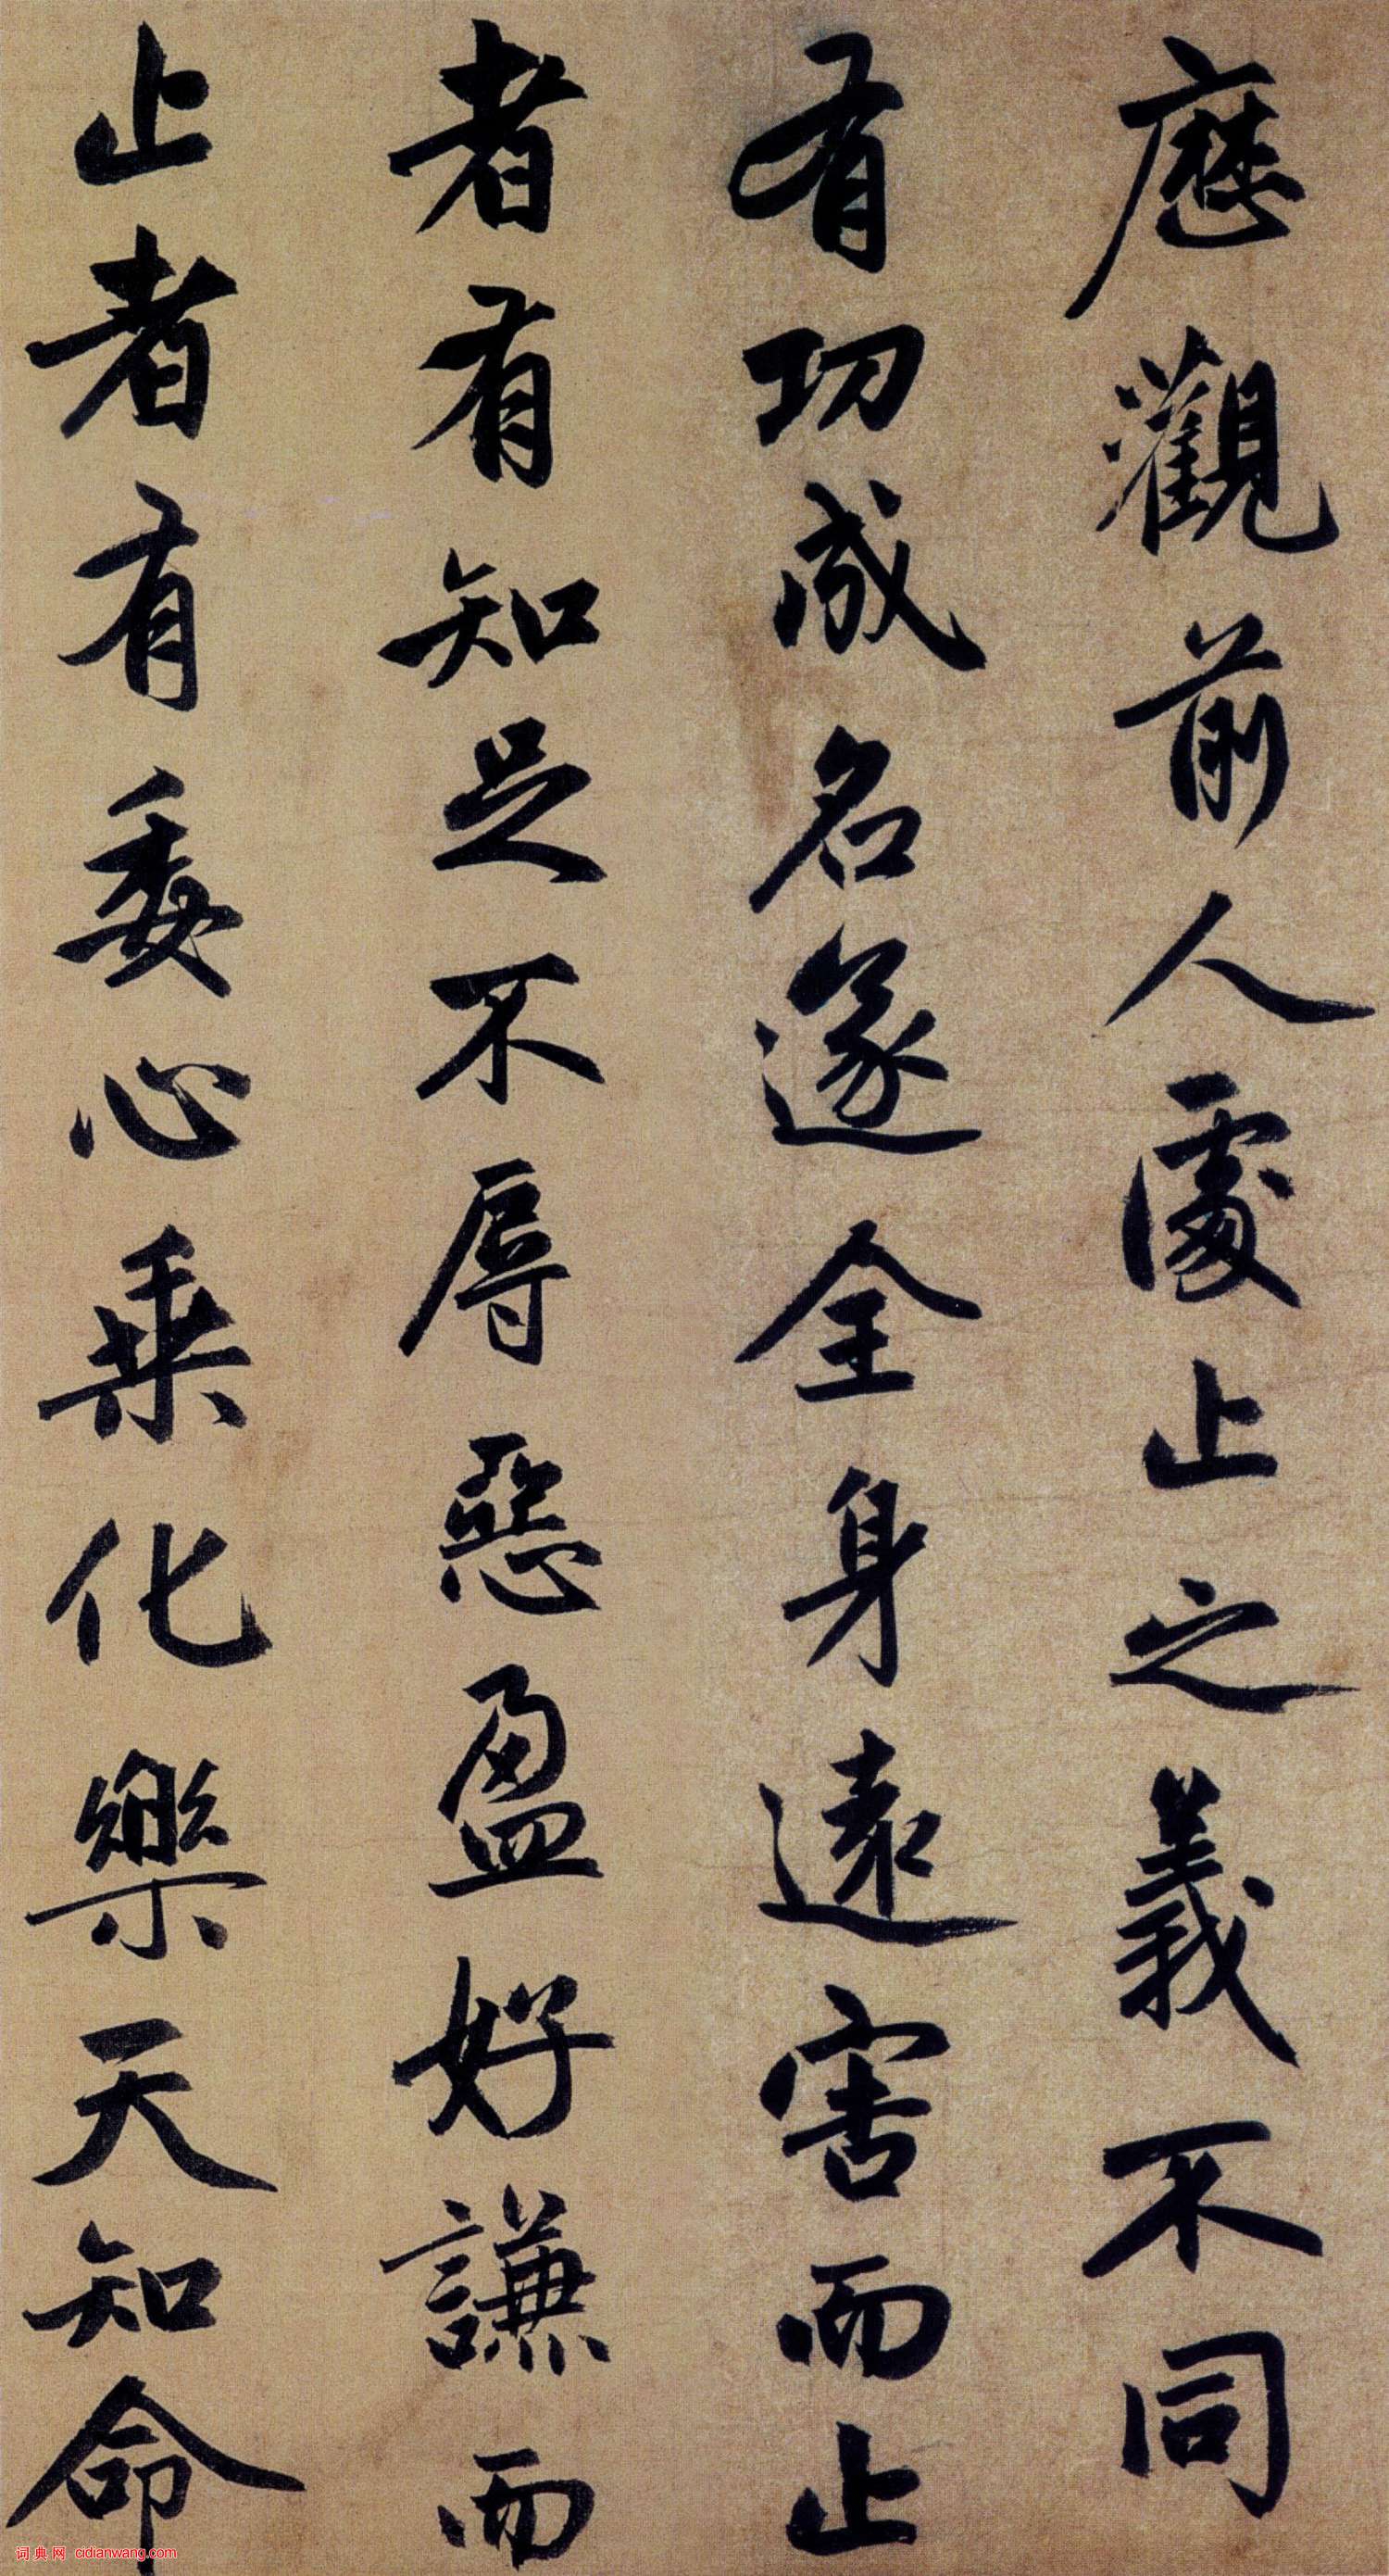 歷觀前人處止之義不同
有功成名遂全身遠害而止
者有知足不辱惡盈好謙而
止者有委心乗化樂天知命
词典网 cidianwang.com